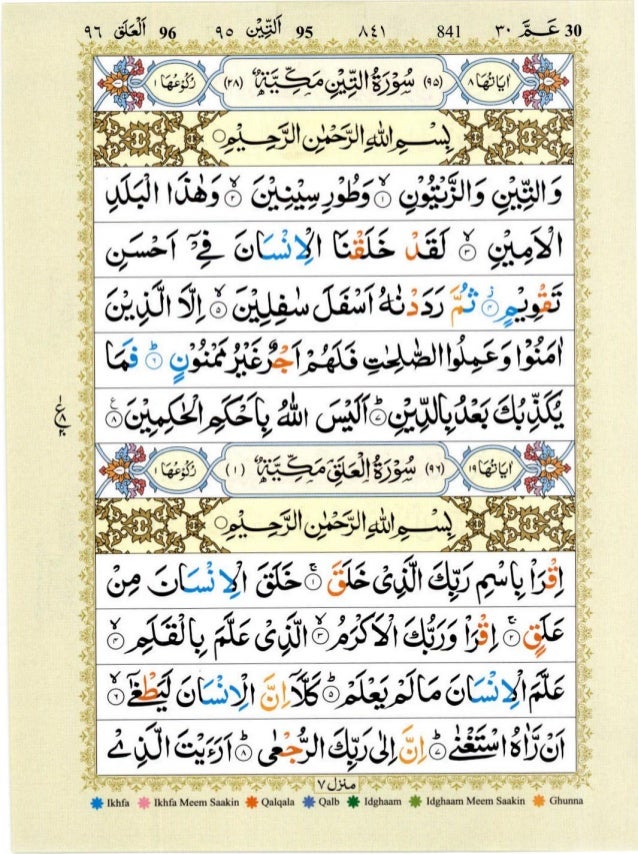 ٩٦ اَلْعَلَق 96 ٩٥ اَلتِّيْن 95 ٨٤١ 841 ٣٠ عَمَّ 30
اٰيَاتُهَا ٨ (٩٥) سُوْرَةُ التِّيْنِ مَكِّيَّةٌ (٢٨) رُكُوْعُهَا ١
بِسْمِ اللهِ الرَّحْمٰنِ الرَّحِيْمِ
وَالتِّيْنِ وَالزَّيْتُوْنِ ۙ ١ وَطُوْرِ سِيْنِيْنَ ۙ ٢ وَهٰذَا الْبَلَدِ
الْاَمِيْنِ ۙ ٣ لَقَدْ خَلَقْنَا الْاِنْسَانَ فِيْۤ اَحْسَنِ
تَقْوِيْمٍ ۫ ٤ ثُمَّ رَدَدْنٰهُ اَسْفَلَ سٰفِلِيْنَ ۙ ٥ اِلَّا الَّذِيْنَ
اٰمَنُوْا وَعَمِلُوا الصّٰلِحٰتِ فَلَهُمْ اَجْرٌ غَيْرُ مَمْنُوْنٍ ؕ ٦ فَمَا
يُكَذِّبُكَ بَعْدُ بِالدِّيْنِ ؕ ٧ اَلَيْسَ اللهُ بِاَحْكَمِ الْحٰكِمِيْنَ ٨ ع
اٰيَاتُهَا ١٩ (٩٦) سُوْرَةُ الْعَلَقِ مَكِّيَّةٌ (١) رُكُوْعُهَا ١
بِسْمِ اللهِ الرَّحْمٰنِ الرَّحِيْمِ
اِقْرَاْ بِاسْمِ رَبِّكَ الَّذِيْ خَلَقَ ۚ ١ خَلَقَ الْاِنْسَانَ مِنْ
عَلَقٍ ۚ ٢ اِقْرَاْ وَرَبُّكَ الْاَكْرَمُ ۙ ٣ الَّذِيْ عَلَّمَ بِالْقَلَمِ ۙ ٤
عَلَّمَ الْاِنْسَانَ مَا لَمْ يَعْلَمْ ؕ ٥ كَلَّاۤ اِنَّ الْاِنْسَانَ لَيَطْغٰۤى ۙ ٦
اَنْ رَّاٰهُ اسْتَغْنٰى ؕ ٧ اِنَّ اِلٰى رَبِّكَ الرُّجْعٰى ؕ ٨ اَرَءَيْتَ الَّذِيْ
منزل ٧
Ikhfa Ikhfa Meem Saakin Qalqala Qalb Idghaam Idghaam Meem Saakin Ghunna